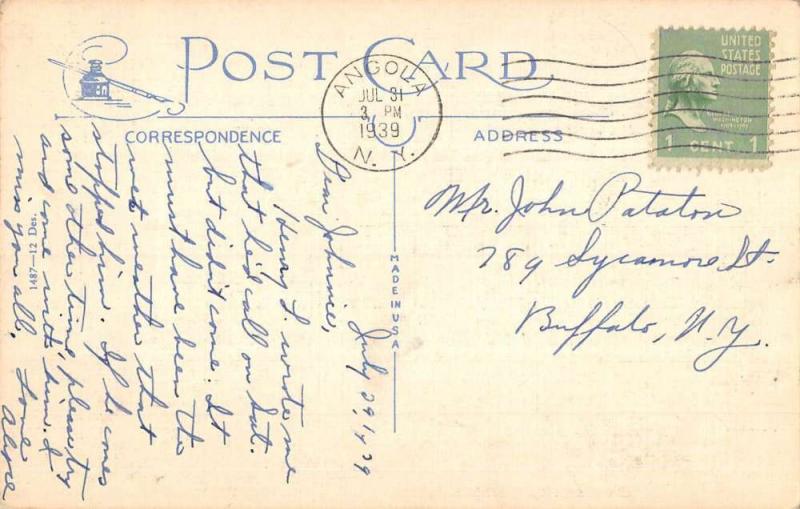 POST CARD
CORRESPONDENCE
ADDRESS
ANGOLA
JUL 31
3 PM
1939
N. Y.
UNITED
STATES
POSTAGE
WASHINGTON
1 CENT 1
MADE IN U.S.A.
1487—12 Des.
July 29, 1939
Dear Johnie,
Henry L. wrote me
that he'd call on Sat.
but didn't come. It
must have been the
wet weather that
stopped him. If he comes
some other time, please try
and come with him. I
miss you all.
Love
Mr. John Pataton
789 Sycamore St.
Buffalo, N.Y.